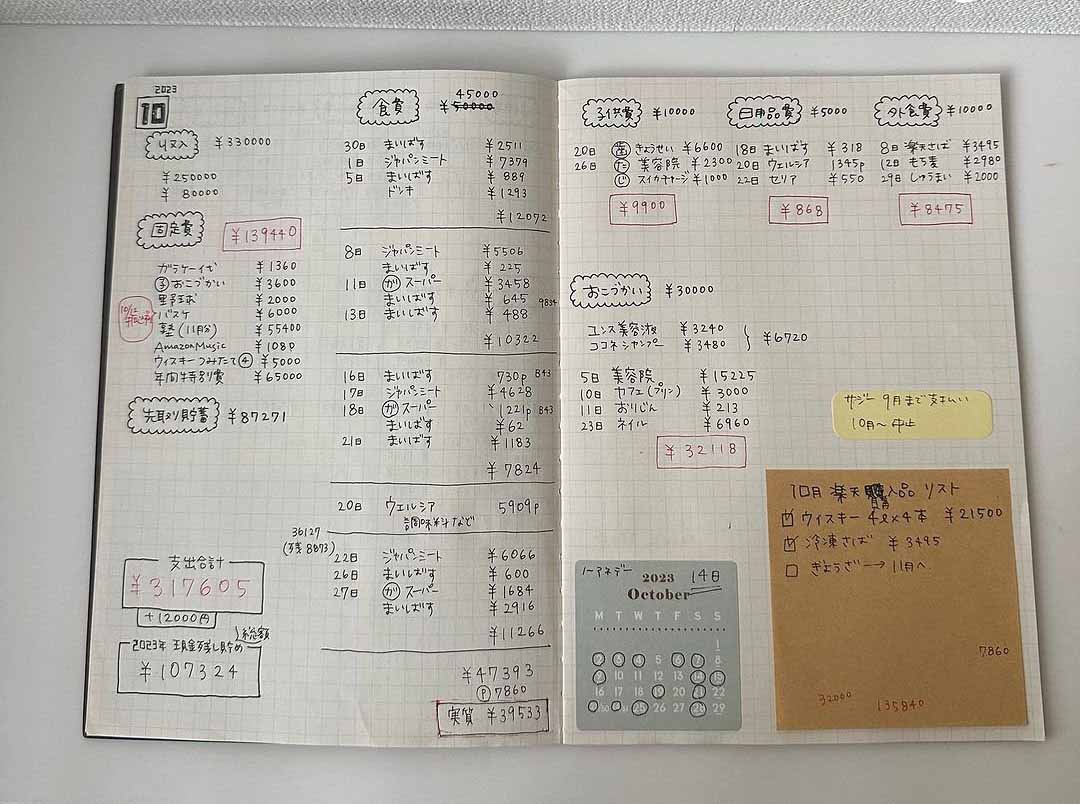 2023
10
収入 ¥330000
¥250000
¥80000
固定費 ¥139440
ガラケー代 ¥1360
子 おこづかい ¥3600
野球 ¥2000
バスケ ¥6000
10/12
塾(11月分) ¥55400
Amazon Music ¥1080
ウィスキーつみたて④ ¥5000
年間特別費 ¥65000
先取り貯蓄 ¥87271
支出合計
¥317605
+12000円
総額
2023年 現金残し貯め
¥107324
食費 45000
¥50000
30日 まいばす ¥2511
1日 ジャパンミート ¥7379
5日 まいばす ¥889
ドンキ ¥1293
¥12072
8日 ジャパンミート ¥5506
まいばす ¥225
11日 ガ スーパー ¥3458
まいばす ¥645 9834
13日 まいばす ¥488
¥10322
16日 まいばす 730p 843
17日 ジャパンミート ¥4628
18日 ガ スーパー 1221p 843
まいばす ¥62
21日 まいばす ¥1183
¥7824
20日 ウェルシア 5909p
調味料など
36127
(残8873)
22日 ジャパンミート ¥6066
26日 まいばす ¥600
27日 ガ スーパー ¥1684
まいばす ¥2916
¥11266
¥47393
P 7860
実質 ¥39533
子供費 ¥10000
20日 歯 きょうせい ¥6600
26日 た 美容院 ¥2300
じ スイカチャージ ¥1000
¥9900
日用品費 ¥5000
18日 まいばす ¥318
20日 ウェルシア 1345p
22日 セリア ¥550
¥868
外食費 ¥10000
8日 楽天さば ¥3495
12日 もち麦 ¥2980
29日 しゅうまい ¥2000
¥8475
おこづかい ¥30000
ユンス美容液 ¥3240
ココネシャンプー ¥3480
¥6720
5日 美容院 ¥15225
10日 カフェ(プリン) ¥3000
11日 おりじん ¥213
23日 ネイル ¥6960
¥32118
サジー 9月まで支払い
10月〜中止
10月 楽天購入品 リスト
ウィスキー 4ℓ×4本 ¥21500
冷凍さば ¥3495
ぎょうざ→11月へ
7860
32000 135840
ノーマネデー
14日
2023
October
M T W T F S S
1
2 3 4 5 6 7 8
9 10 11 12 13 14 15
16 17 18 19 20 21 22
30 31 25 26 27 28 29